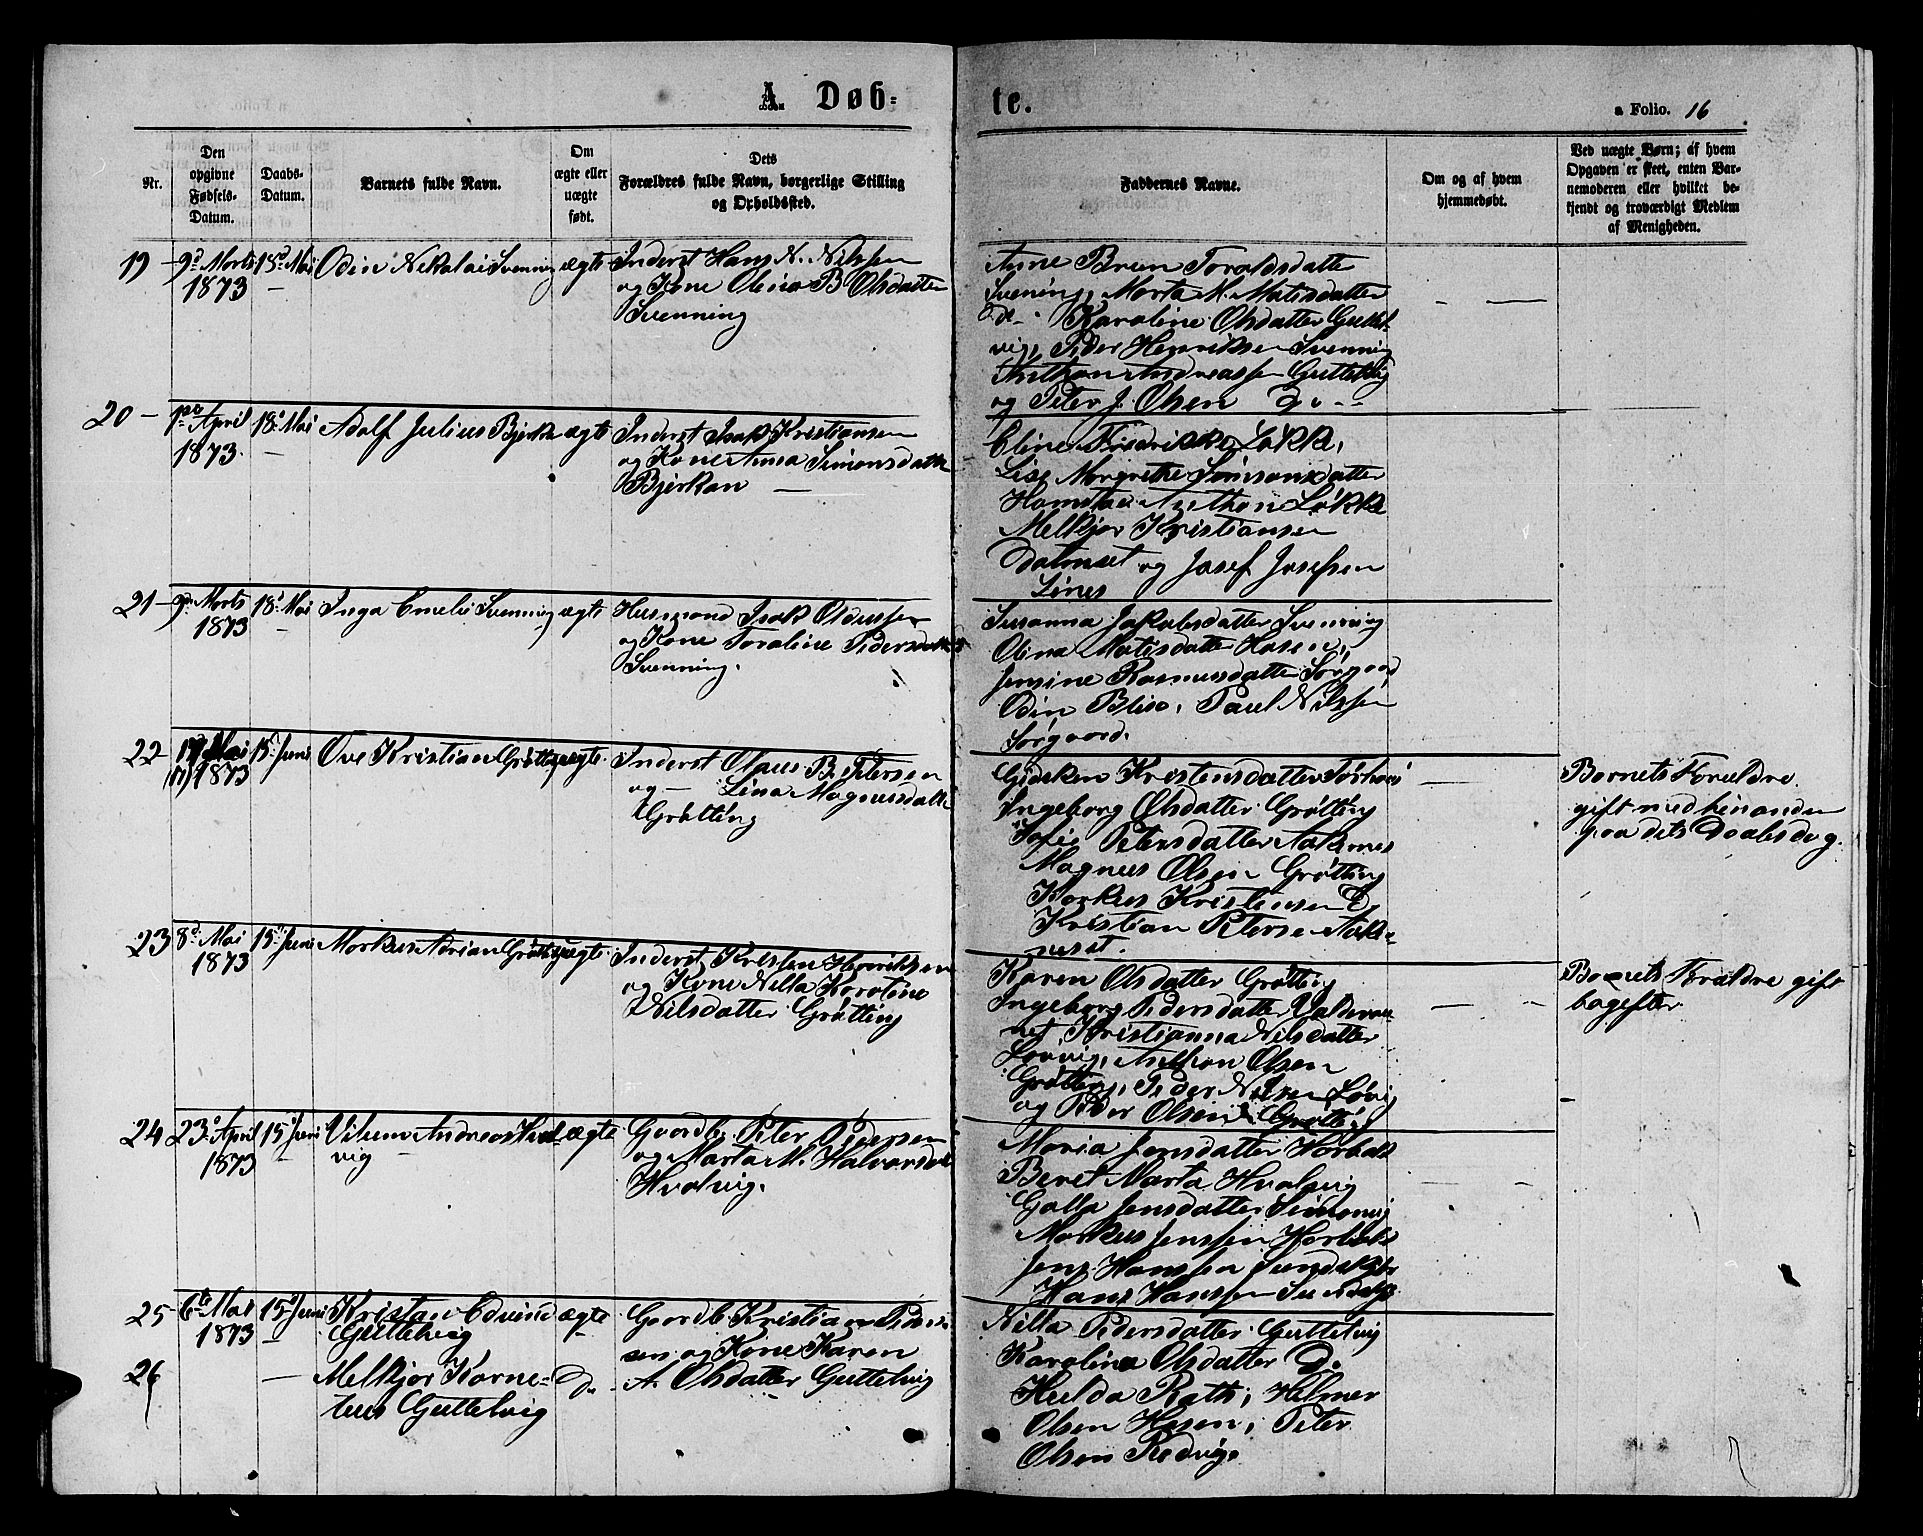 A. Døb-
te.
a Folio. 16
Nr.
Den
opgivne
Fødsels-
Datum.
Daabs-
Datum.
Barnets fulde Navn.
Om
ægte eller
uægte
født.
Dets
Forældres fulde Navn, borgerlige Stilling
og Opholdssted.
Faddernes Navne.
Om og af hvem
hjemmedøbt.
Ved uægte Børn; af hvem
Opgaven er skeet, enten Bar-
nemoderen eller hvilket be-
kjendt og troværdigt Medlem
af Menigheden.
19 9d Marts 18d Mai Odin Nikolai Svenning ægte Inderst Hans N. Nilssen
1873 — og Kone Olina B Olsdatter
Svenning
Anne Brun Toraldsdatter
Svening, Marta M. Matisdatter
do — Karoline Olsdatter Guttel-
vig, Peder Henriksen Svenning
Anthon Andreassen Guttelvig
og Peter J. Olsen Do
20 — 1ste April 18d Mai Adolf Julius Bjerkan ægte Inderst Isak Kristiansen
1873. — og Kone Anna Simonsdatter
Bjerkan —
Eline Fredrikke Løkke,
Lise Margrethe Simonsdatter
Anthon Løkke
Melkjor Kristiansen
og Josef Josefsen
Lines
21 — 9d Marts 18d Mai Inga Emelie Svenning ægte Husmand Isak
1873 — og Kone Toraline Pedersdatter
Svenning.
Susanna Jakobsdatter Svenning
Olina Matisdatter Hasen,
Jensine Rasmusdatter Sørgaard
Odin Blix, Paul Nilssen
Sørgaard.
22 17 Mai 15d Juni Ove Kristian Grøtting uægte Inderst Olaus B. Petersen
(17) 1873 og — Lina Magnusdatter
Grøtting
Kristensdatter
Ingeborg Olsdatter Grøtting
Sofie Petersdatter Aaknes
Magnus Olsen Grøtting
Markus Kristensen Do
Kristian Petersen Aak-
neset.
Barnets Forældre
gift med hinanden
paa dets Daabsdag.
23 8d Mai 15d Juni Markus Adrian Grøtting uægte Inderst Kristen Henriksen
1873 og Kone Nilla Karoline
Nilsdatter Grøtting
Karen Olsdatter Grøtting
Ingeborg Pedersdatter Valderau-
net Kristianna Nilsdatter
Løvvig, Anthon Olsen
Grøtting, Peder Nilsen Løvig
og Peder Olsen Grøtting
Barnets Forældre gift
bagefter
24 23d April 15d Juni Vilhem Andreas Hval- ægte Gaardb. Peter Pedersen
1873 — vig — og Marta M. Halvorsdat
Hvalvig.
Maria Jensdatter Harbak
Beret Marta Hvalvig
Golla Jensdatter
Markus Jenssen Harbak
Jens Hanssen
Hans Hanssen
25 6te Mai 15d Juni Kristan Edvind ægte Gaardb Kristian Peder-
1873 — Guttelvig — sen og Kone Karen
26 — Melkjor Korne- Do A. Olsdatter Guttelvig
lius Guttelvig
Nilla Pedersdatter Guttelvig
Karolina Olsdatter Do
Hulda Rath, Helmer
Olsen Hasen, Peter
Olsen Redvig.